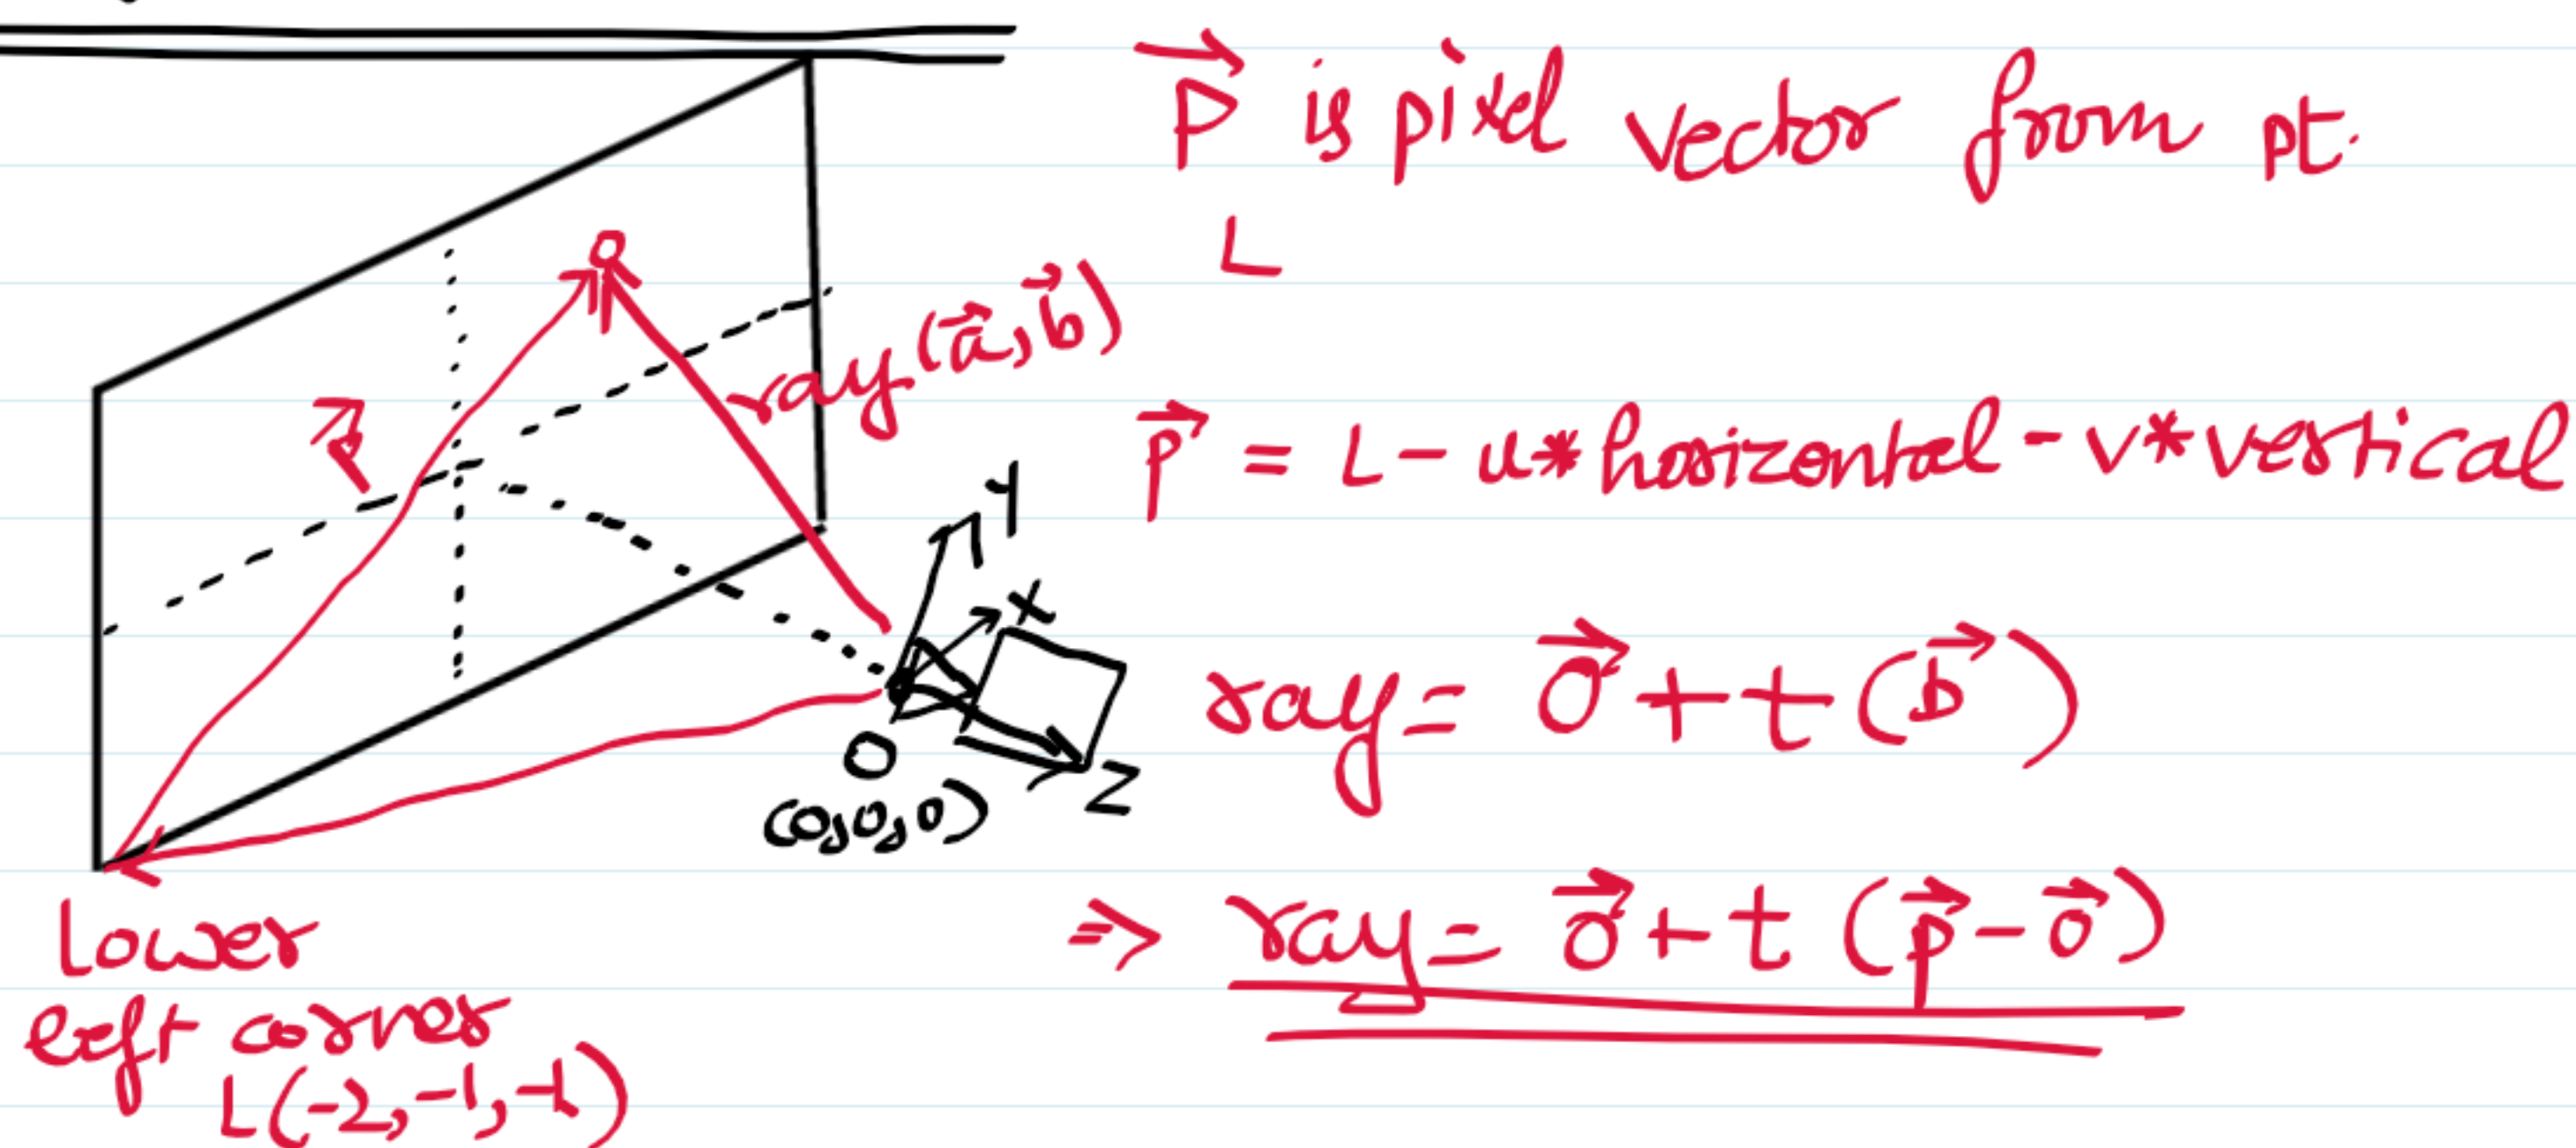 P⃗ is pixel vector from pt.
L
ray(a⃗,b⃗)
p⃗
p⃗ = L - u*horizontal - v*vertical
Y
X
Z
O
(0,0,0)
ray = O⃗ + t(b⃗)
⇒ ray = o⃗ + t (p⃗ - o⃗)
lower
left corner
L(-2,-1,-1)